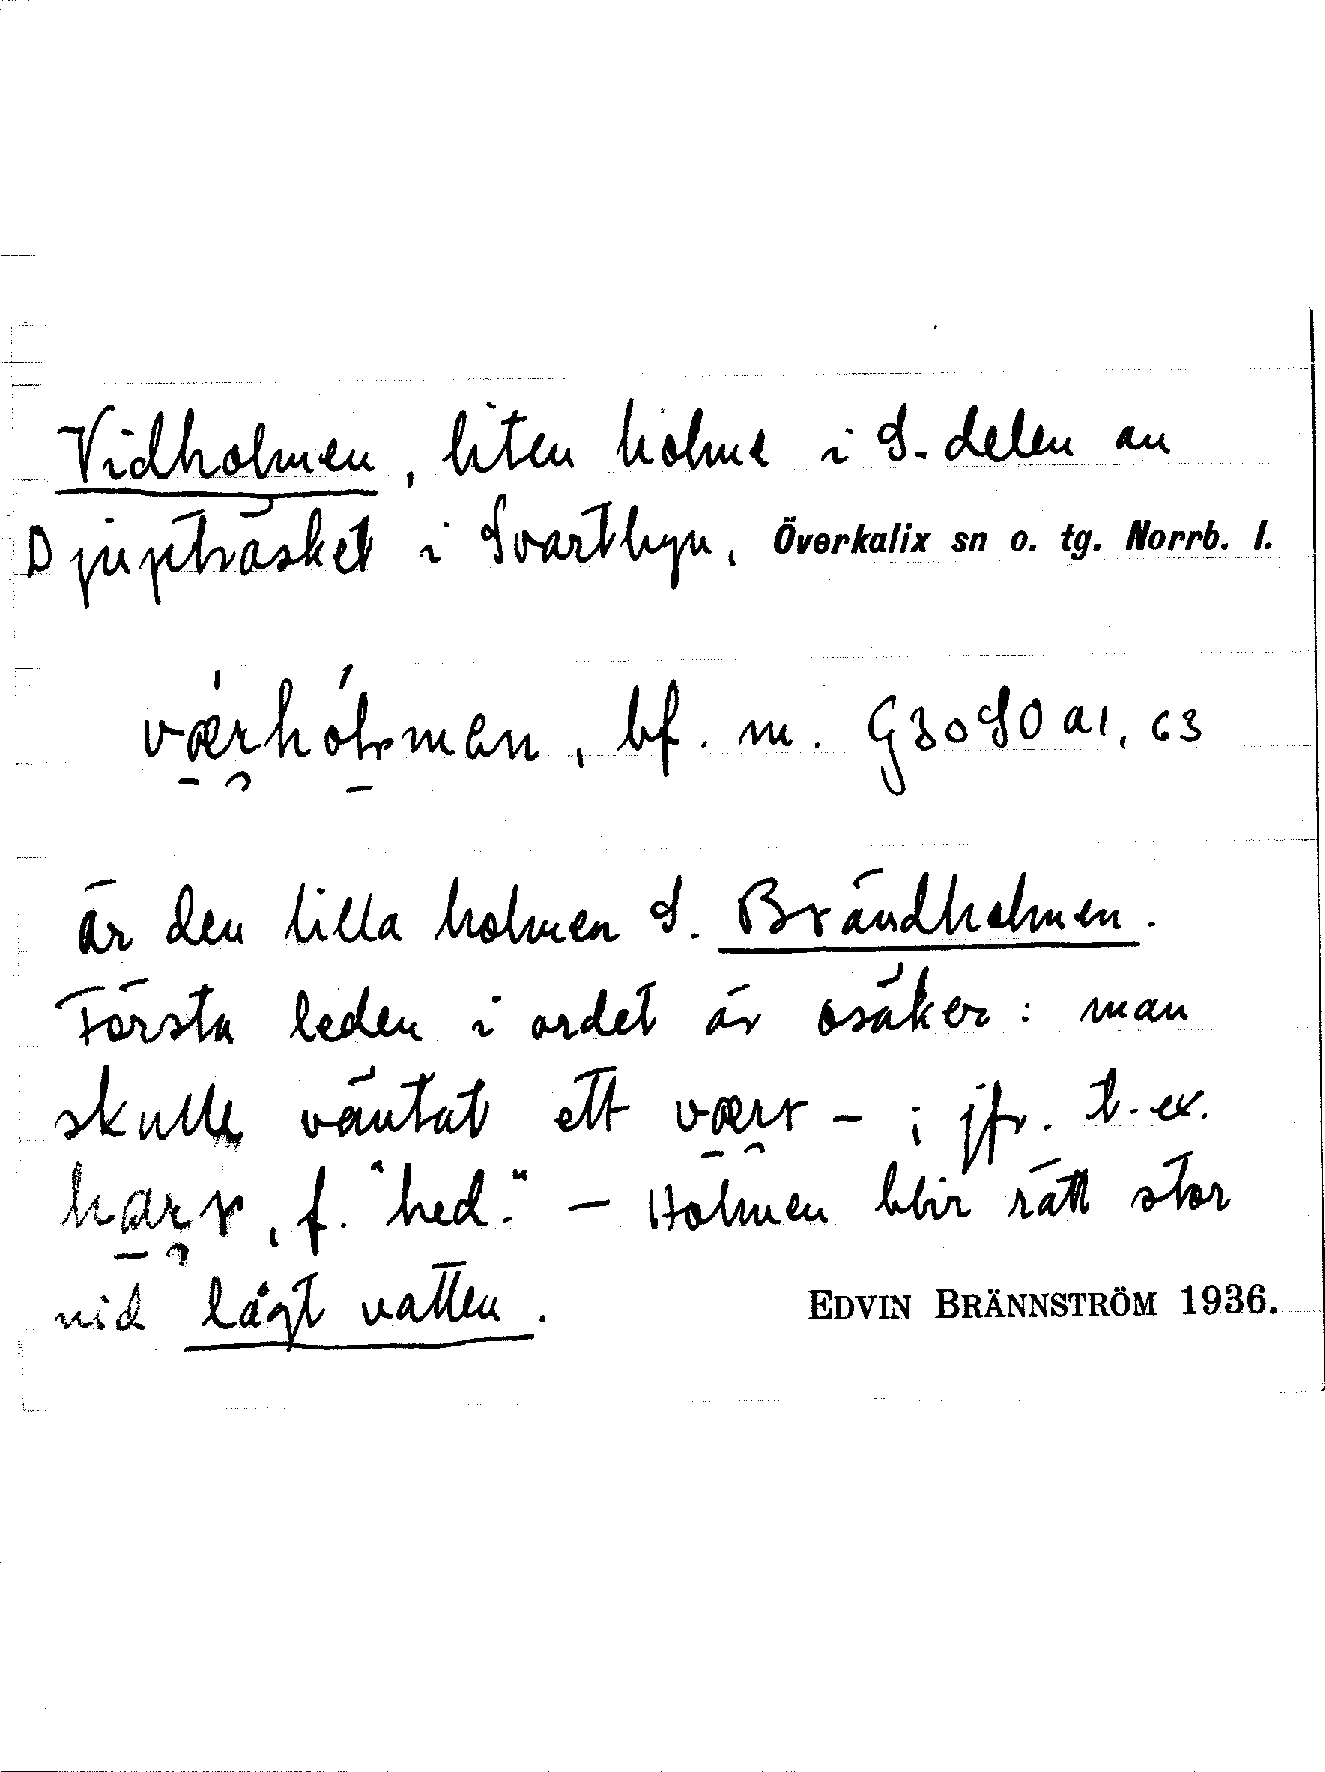 Vidholmen, liten holme i S. delen av
Djupträsket i Svartbyn, Överkalix sn o. tg. Norrb. l.
værhólmen, bf. m. G3oSO a1, c3
är den lilla holmen S. Brändholmen.
Första leden i ordet är osäker: man
skulle väntat ett værr - ; jfr. t. ex.
harr, f. "hed." - Holmen blir rätt stor
vid lågt vatten.
EDVIN BRÄNNSTRÖM 1936.